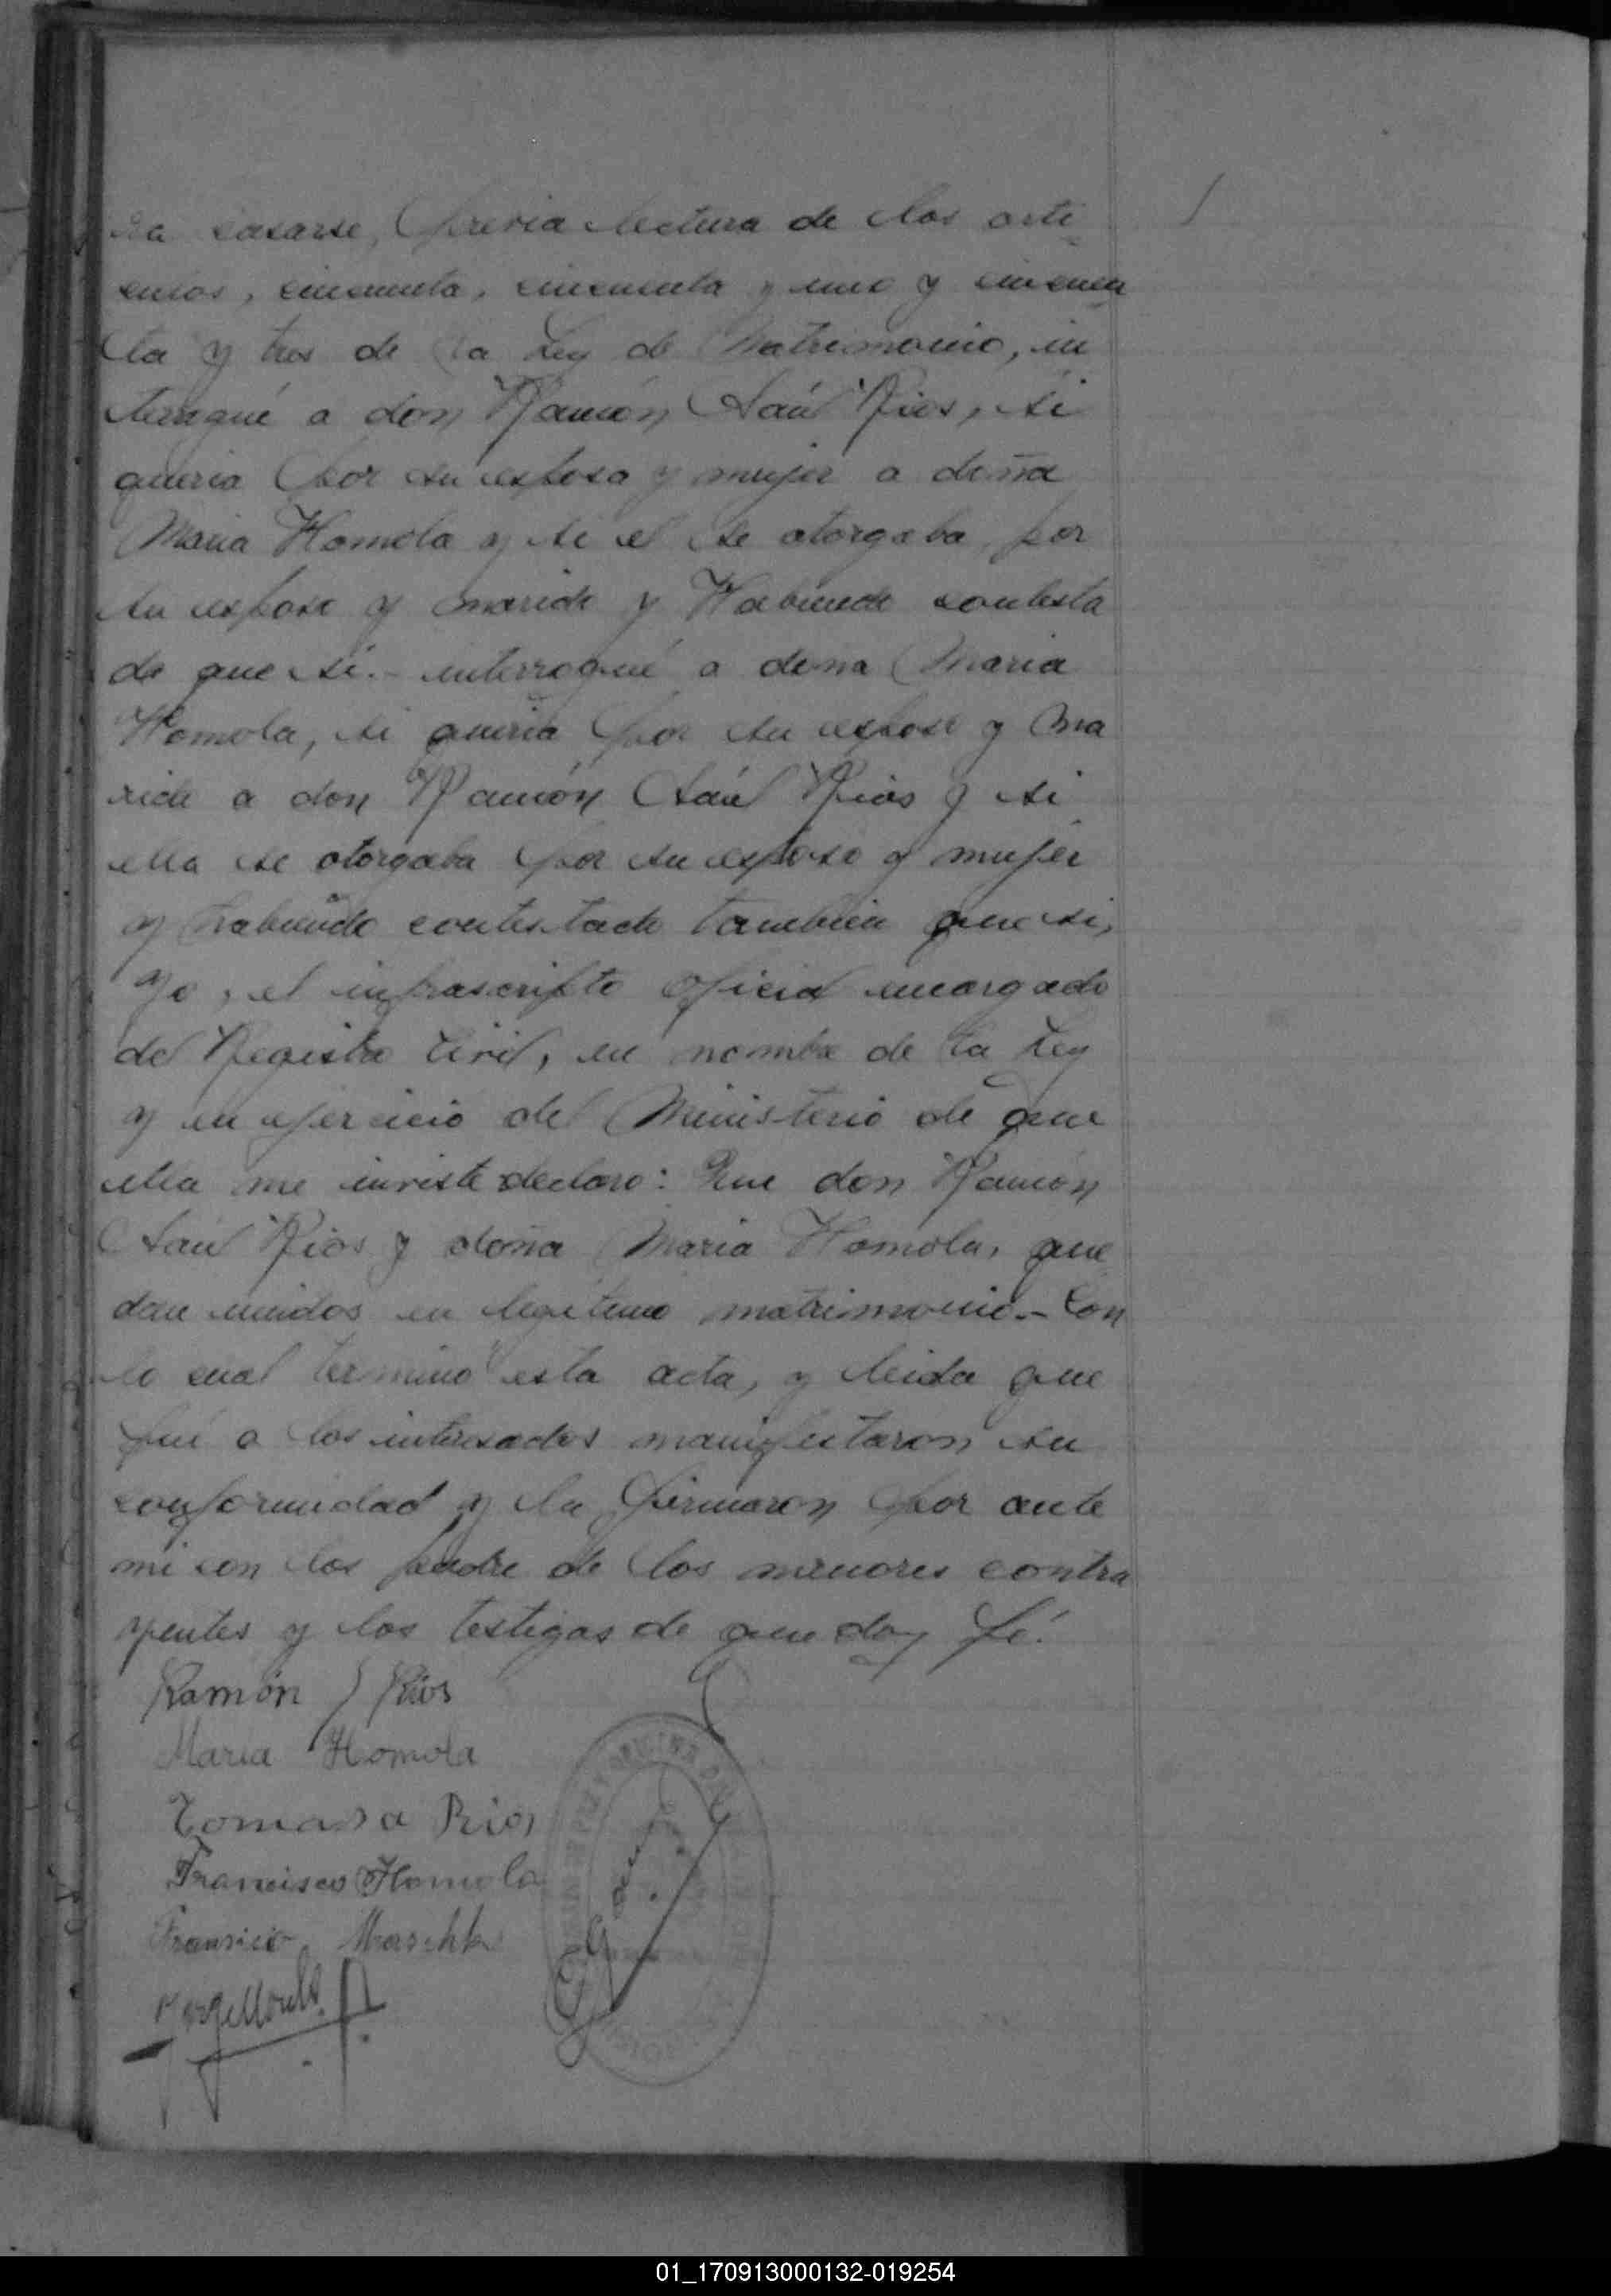 ra casarse, previa lectura de los arti
culos, cincuenta, cincuenta y uno y cincuen
ta y tres de la Ley de Matrimonio, in
terrogué a don Ramón Saúl Rios, si
queria por su esposa y mujer a doña
Maria Homola y si el se otorgaba por
su esposo y marido y Habiendo contesta
do que si.- interrogué a dona Maria
Homola, si queria por su esposo y ma
rido a don Ramón Saúl Rios y si
ella se otorgaba por su esposo y mujer
y habiendo contestado tambien que si,
yo, el infrascripto Oficial encargado
del Registro Civil, en nombre de la Ley
y en ejercicio del Ministerio de que
ella me inviste declaro: Que don Ramón
Saúl Rios y doña Maria Homola, que
dan unidos en legitimo matrimonio.- Con
lo cual terminó esta acta, y leida que
fué a los interesados manifestaron su
conformidad y la firmaron por ante
mi con los padre de los menores contra
yentes y los testigos de que doy fé.
Ramón S Rios
Maria Homola
Tomasa Rios
Francisco Homola
01_170913000132-019254